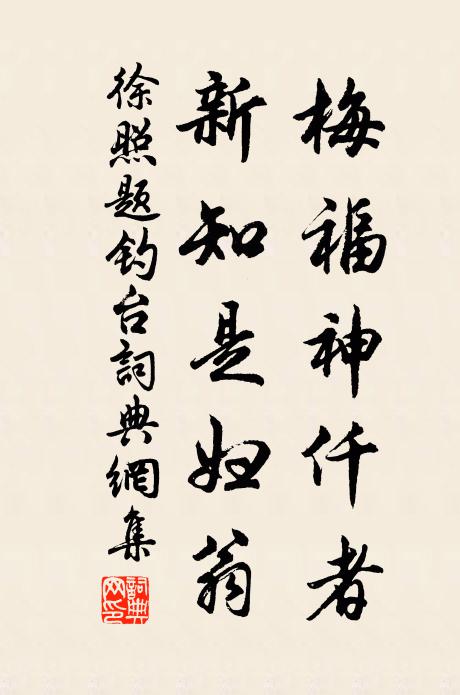 梅福神仟者
新知是妇翁
徐照题钓台詞典網集
詞典网印